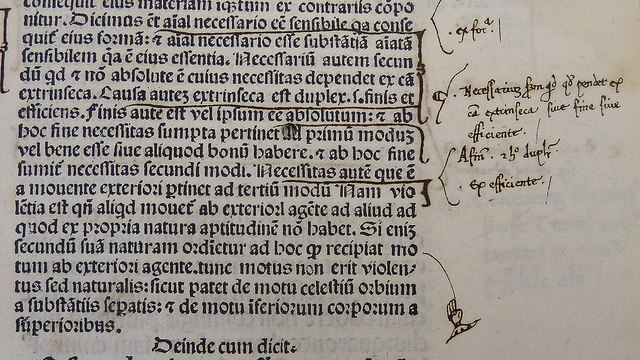 consequit eius materiam iqȝtum ex contrariis cōpo
nitur. Dicimus et aīal necessario eē sensibile qa conse
quit̄ eius formā: ⁊ aīal necessario esse substātiā aīatā
sensibilem qa ē eius essentia. Necessariū autem secun
dū qd ⁊ nō absolute ē cuius necessitas dependet ex cā
extrinseca. Causa autez extrinseca est duplex.s.finis et
efficiens. Finis aute est vel ipsum eē absolutum: ⁊ ab
hoc fine necessitas sumpta pertinet ad primū moduȝ
vel bene esse siue aliquod bonū habere. ⁊ ab hoc fine
sumit̄ necessitas secundi modi. Necessitas autē que ē
a mouente exteriori ꝑtinet ad tertiū modū Nam vio
lētia est qn̄ aliqd mouet̄ ab exteriorI agēte ad aliud ad
quod ex propria natura aptitudinē nō habet. Si eniȝ
secundū suā naturam ordīetur ad hoc ꝙ recipiat mo
tum ab exteriori agente.tunc motus non erit violen-
tus sed naturalis: sicut patet de motu celestiū orbium
a substātiis seꝑatis: ⁊ de motu īferiorum corporum a
superioribus.
Deinde cum dicit:
ex for.
Necessariū qd pendet ex
cā extrinseca siue fine siue
efficiente.
Ex efficiente.